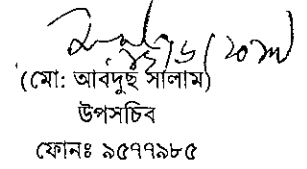 (মো: আবদুছ সালাম)
উপসচিব
ফোনঃ ৯৫৭৭৯৮৫